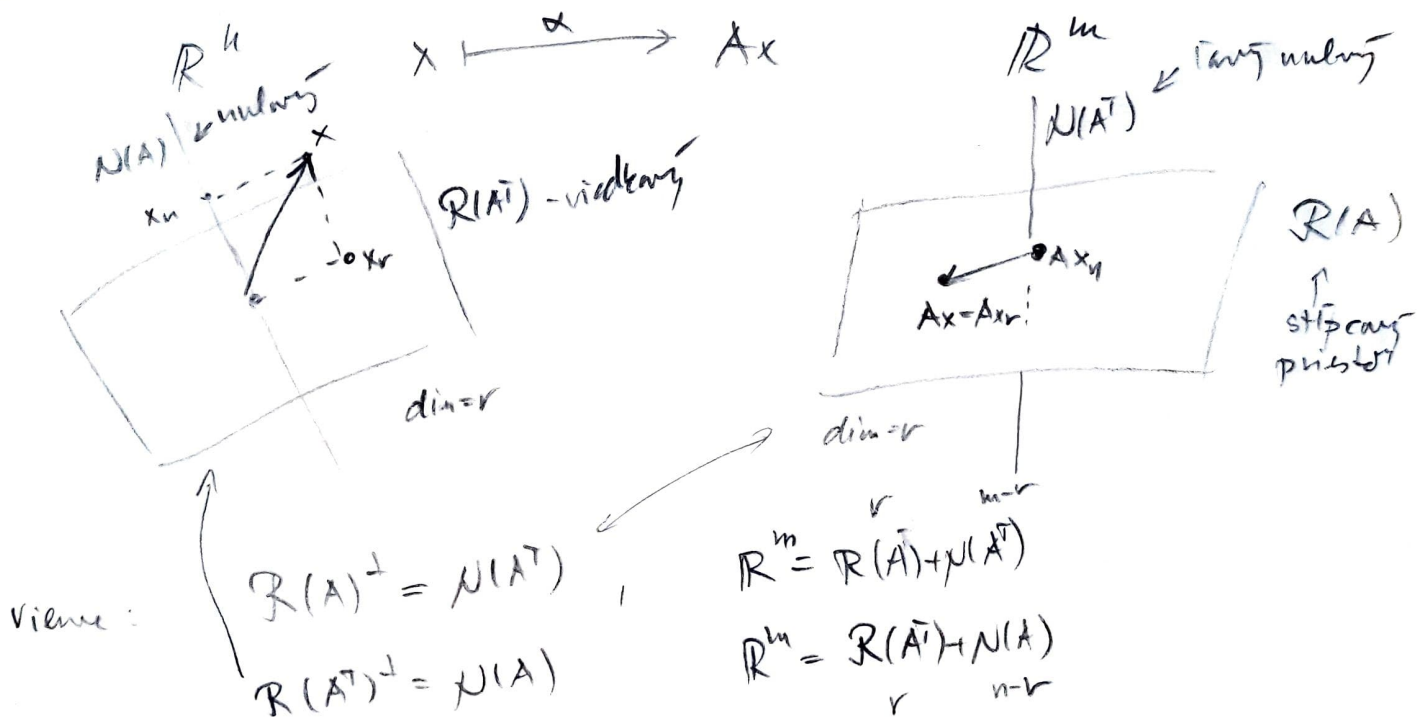 ℝⁿ
x ⟼ Ax
α
ℝᵐ
ľavý nulový
N(A)
nulový
x
xₙ
xᵣ
R(Aᵀ) - riadkový
dim=r
N(Aᵀ)
Axₙ
Ax=Axᵣ
R(A)
stĺpcový
priestor
dim=r
Vieme:
R(A)^⊥ = N(Aᵀ) ,
R(Aᵀ)^⊥ = N(A)
r m-r
ℝᵐ = R(Aᵀ)+N(Aᵀ)
ℝᵐ = R(Aᵀ)+N(A)
r n-r